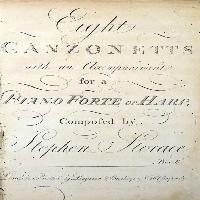 Eight
CANZONETTS
with an Accompaniment
for a
PIANO FORTE or HARP,
Composed by
Stephen Storace